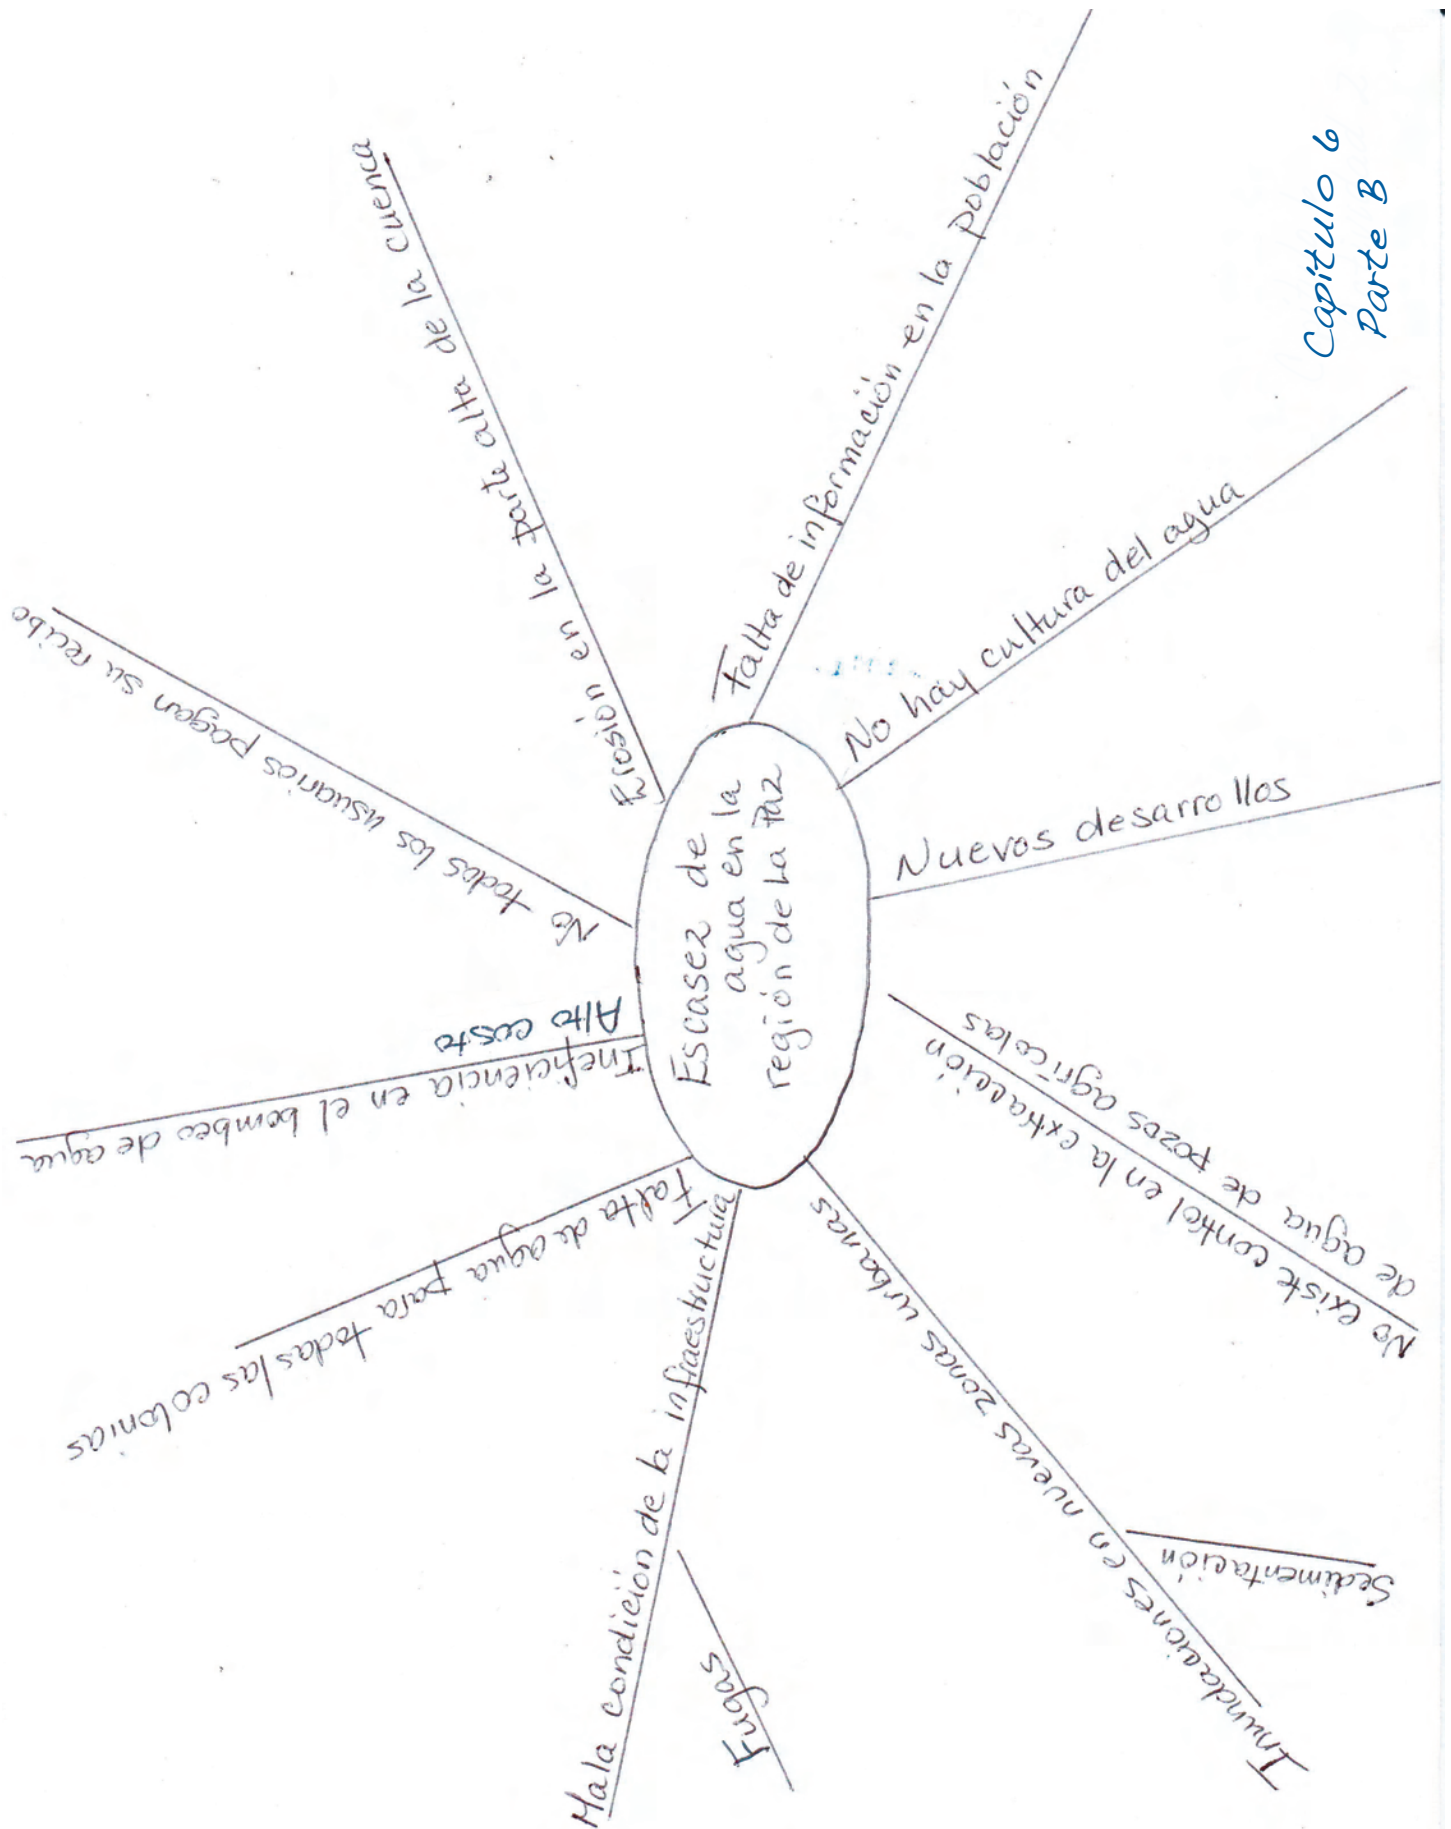 Capítulo 6
Parte B
Escasez de
agua en la
región de La Paz
Falta de información en la población
No hay cultura del agua
Nuevos desarrollos
No existe control en la extracción
de agua de pozos agrícolas
Inundaciones en nuevas zonas urbanas
Sedimentación
Mala condición de la infraestructura
Fugas
Falta de agua para todas las colonias
Ineficiencia en el bombeo de agua
Alto costo
No todos los usuarios pagan su recibo
Erosión en la parte alta de la cuenca